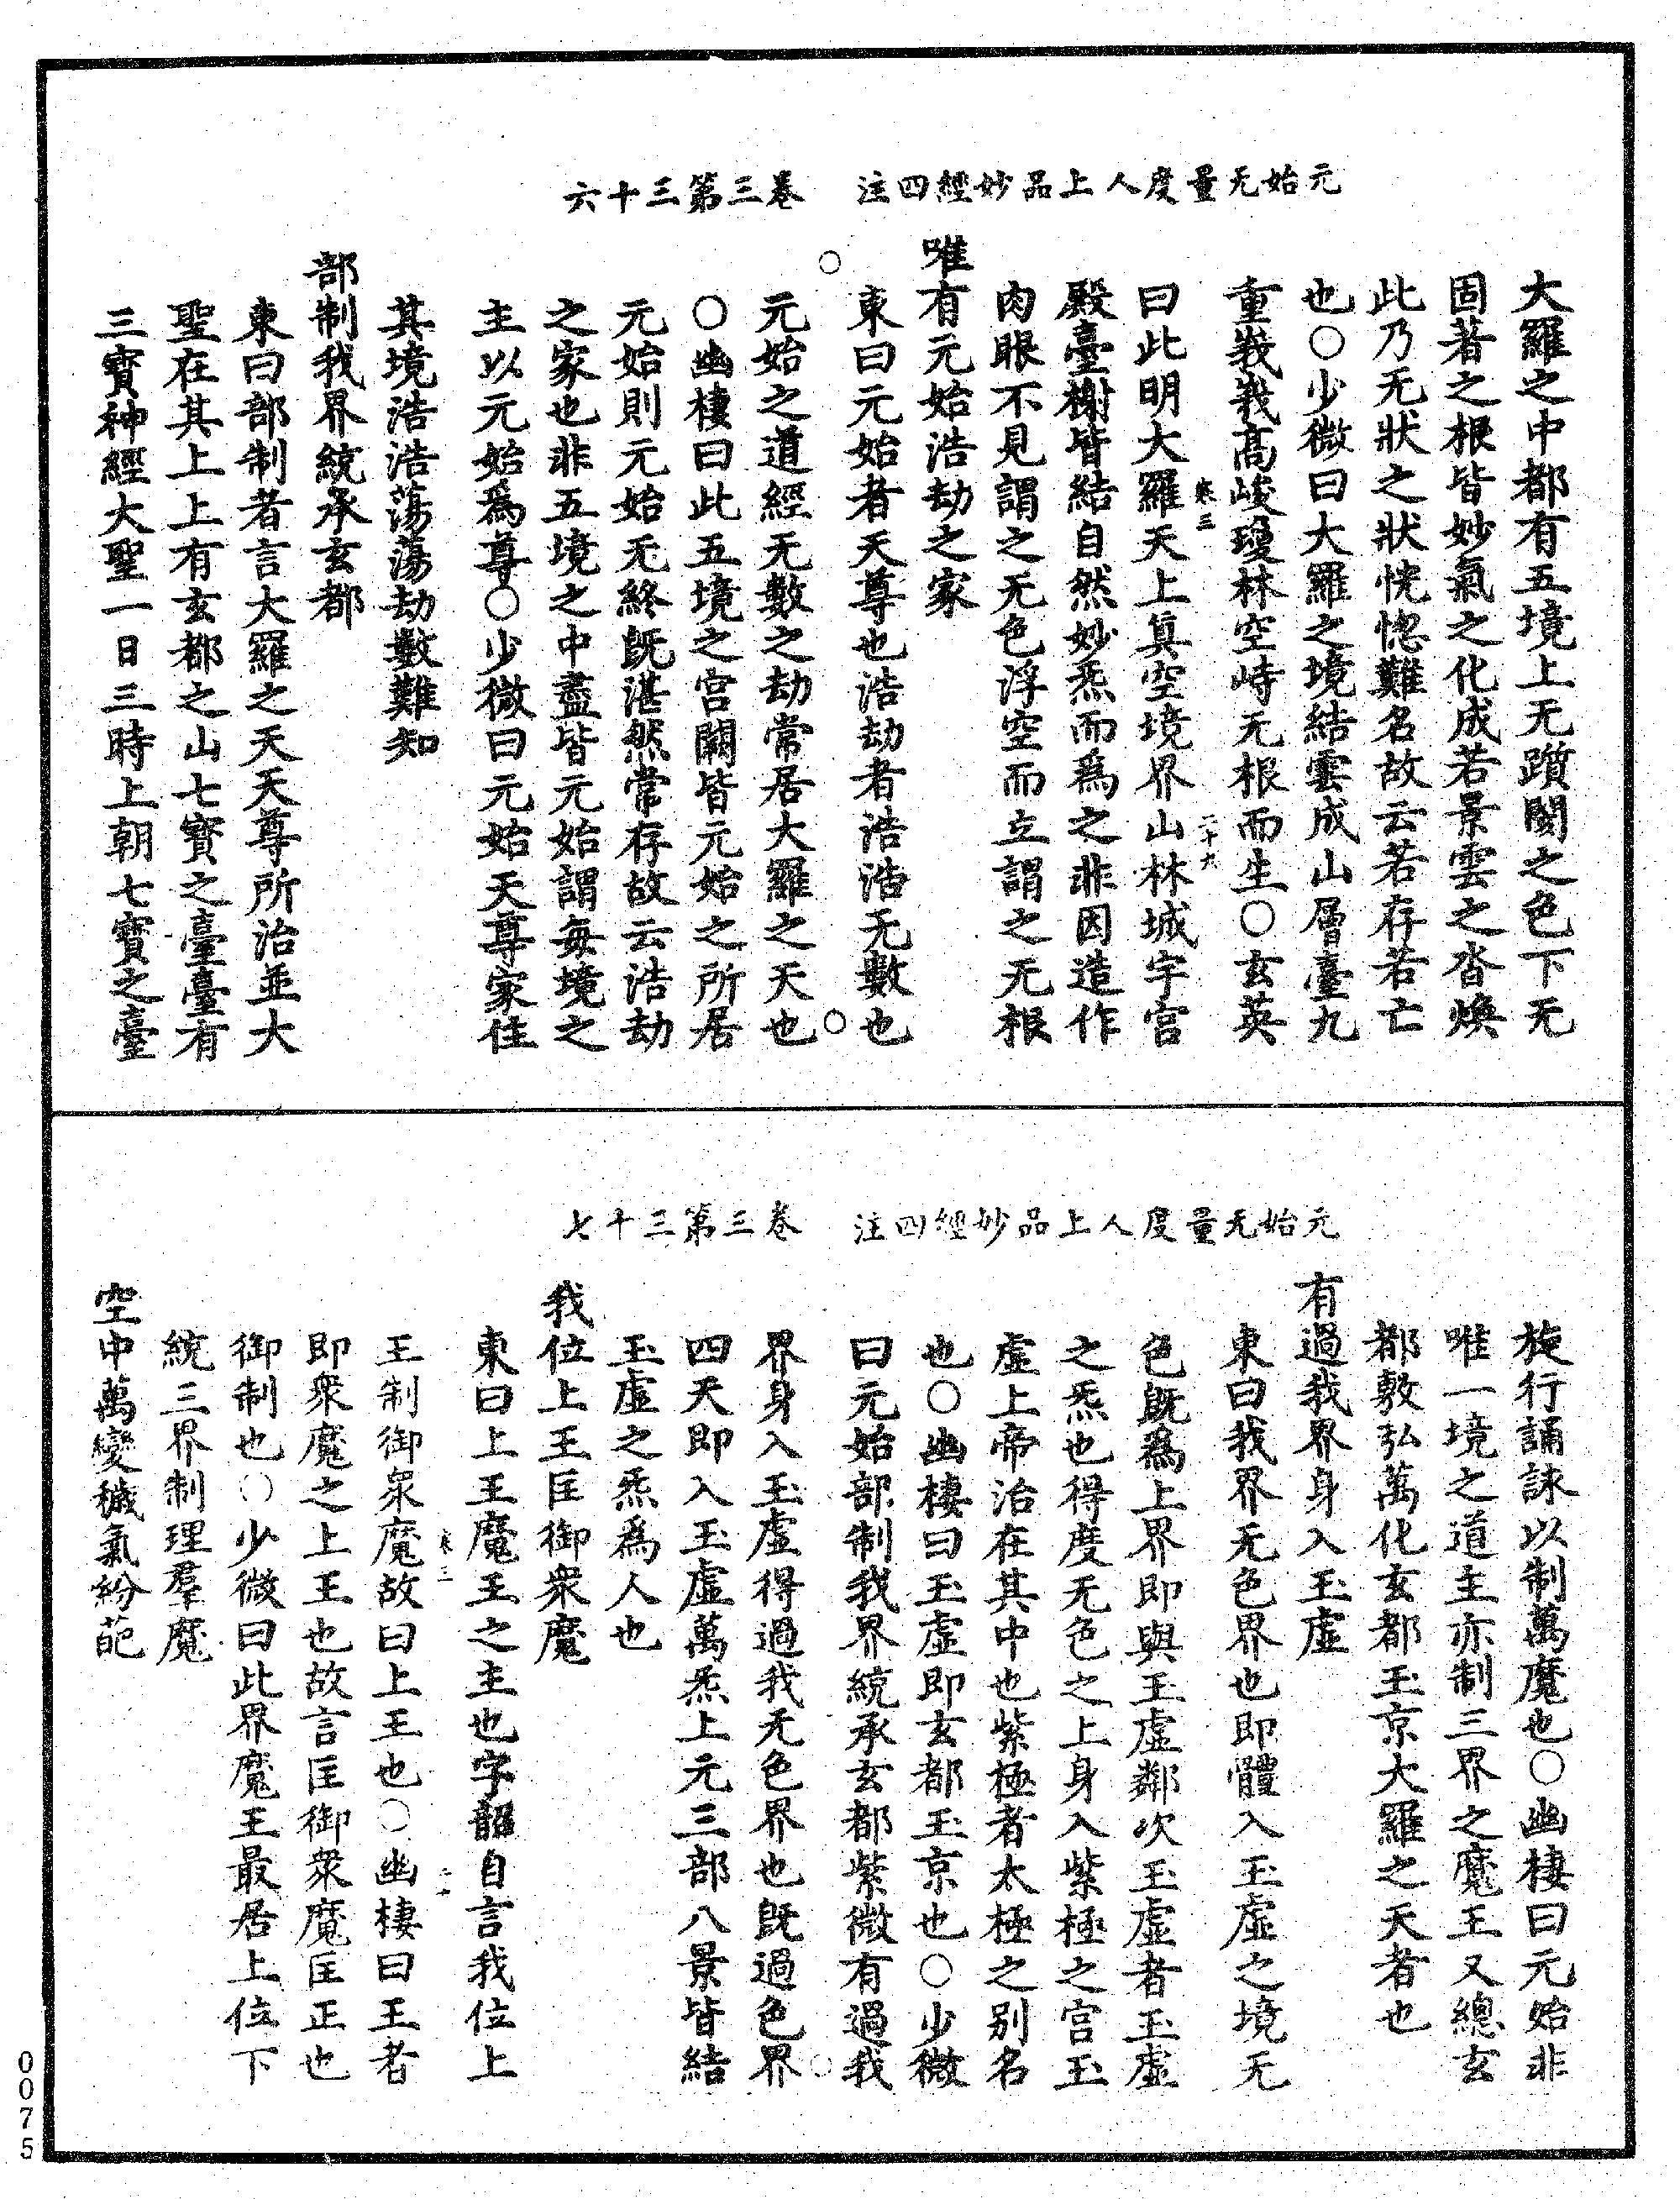 元始无量度人上品妙經四注　卷三第三十六
大羅之中都有五境上无躓閡之色下无
固著之根皆妙氣之化成若景雲之沓煥
此乃无狀之狀恍惚難名故云若存若亡
也○少微曰大羅之境結雲成山層臺九
重峩峩高峻瓊林空峙无根而生○玄英
卷三　二十六
曰此明大羅天上真空境界山林城宇宮
殿臺榭皆結自然妙炁而爲之非因造作
肉眼不見謂之无色浮空而立謂之无根
唯有元始浩劫之家
東曰元始者天尊也浩劫者浩浩无數也
元始之道經无數之劫常居大羅之天也
○幽棲曰此五境之宮闕皆元始之所居
元始則元始无終旣湛然常存故云浩劫
之家也非五境之中盡皆元始謂每境之
主以元始爲尊○少微曰元始天尊家住
其境浩浩蕩蕩劫數難知
部制我界統承玄都
東曰部制者言大羅之天天尊所治並大
聖在其上上有玄都之山七寶之臺臺有
三寶神經大聖一日三時上朝七寶之臺
元始无量度人上品妙經四注　卷三第三十七
旋行誦詠以制萬魔也○幽棲曰元始非
唯一境之道主亦制三界之魔王又總玄
都敷弘萬化玄都玉京大羅之天者也
有過我界身入玉虛
東曰我界无色界也即體入玉虛之境无
色旣爲上界即與玉虛鄰次玉虛者玉虛
之炁也得度无色之上身入紫極之宮玉
虛上帝治在其中也紫極者太極之别名
也○幽棲曰玉虛即玄都玉京也○少微
曰元始部制我界統承玄都紫微有過我
界身入玉虛得過我无色界也旣過色界
四天即入玉虛萬炁上元三部八景皆結
玉虛之炁爲人也
我位上王匡御衆魔
東曰上王魔王之主也字韶自言我位上
卷三
王制御衆魔故曰上王也○幽棲曰王者
即衆魔之上王也故言匡御衆魔匡正也
御制也○少微曰此界魔王最居上位下
統三界制理羣魔
空中萬變穢氣紛葩
0075